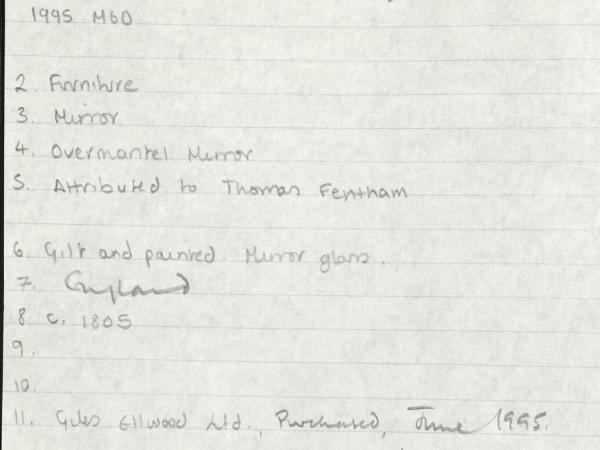 1995 M60
2 Furniture
3. Mirror
4. Overmantel Mirror
5. Attributed to Thomas Fentham
6. Gilt and painted. Mirror glass.
7. England
8 c. 1805
9.
10.
11. Giles Ellwood Ltd., Purchased, June 1995.